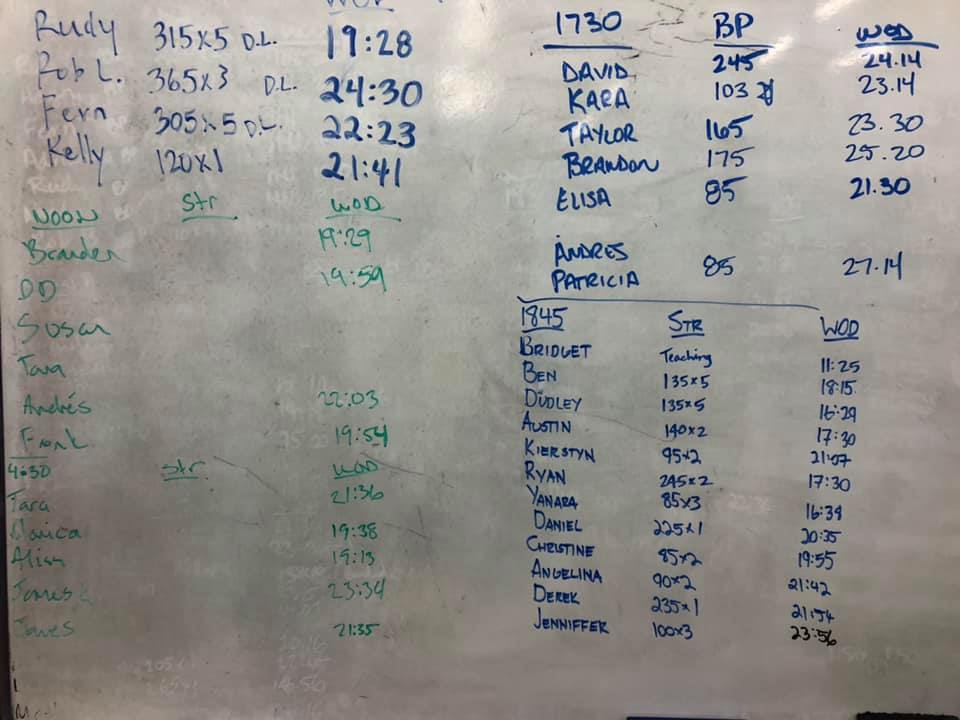 WOD
Rudy 315x5 D.L. 19:28
Rob L. 365x3 D.L. 24:30
Fern 305x5 D.L. 22:23
Kelly 120x1 21:41
NOON Str WOD
Branden 19:29
DD 19:59
Susan
Tara
Andrés 22:03
Frank 19:54
4:30 Str WOD
Tara 21:36
19:38
19:13
James 23:34
James 21:35
1730 BP WOD
DAVID 245 24.14
KARA 103 23.14
TAYLOR 165 23.30
BRANDON 175 25.20
ELISA 85 21.30
ANDRES
PATRICIA 85 27.14
1845 STR WOD
BRIDGET Teaching 11:25
BEN 135x5 18:15
DUDLEY 135x5 16:29
AUSTIN 140x2 17:30
KIERSTYN 95x2 21:07
RYAN 245x2 17:30
YANARA 85x3 16:39
DANIEL 225x1 20:35
CHRISTINE 85x2 19:55
ANGELINA 90x2 21:42
DEREK 235x1 21:54
JENNIFFER 100x3 23:56